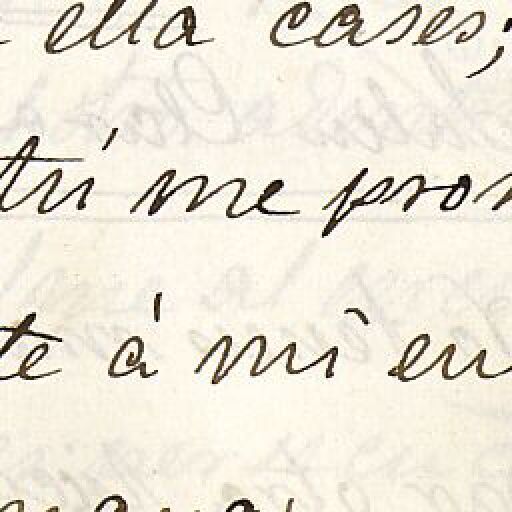 ella cases;
tú me pron
te á mí en